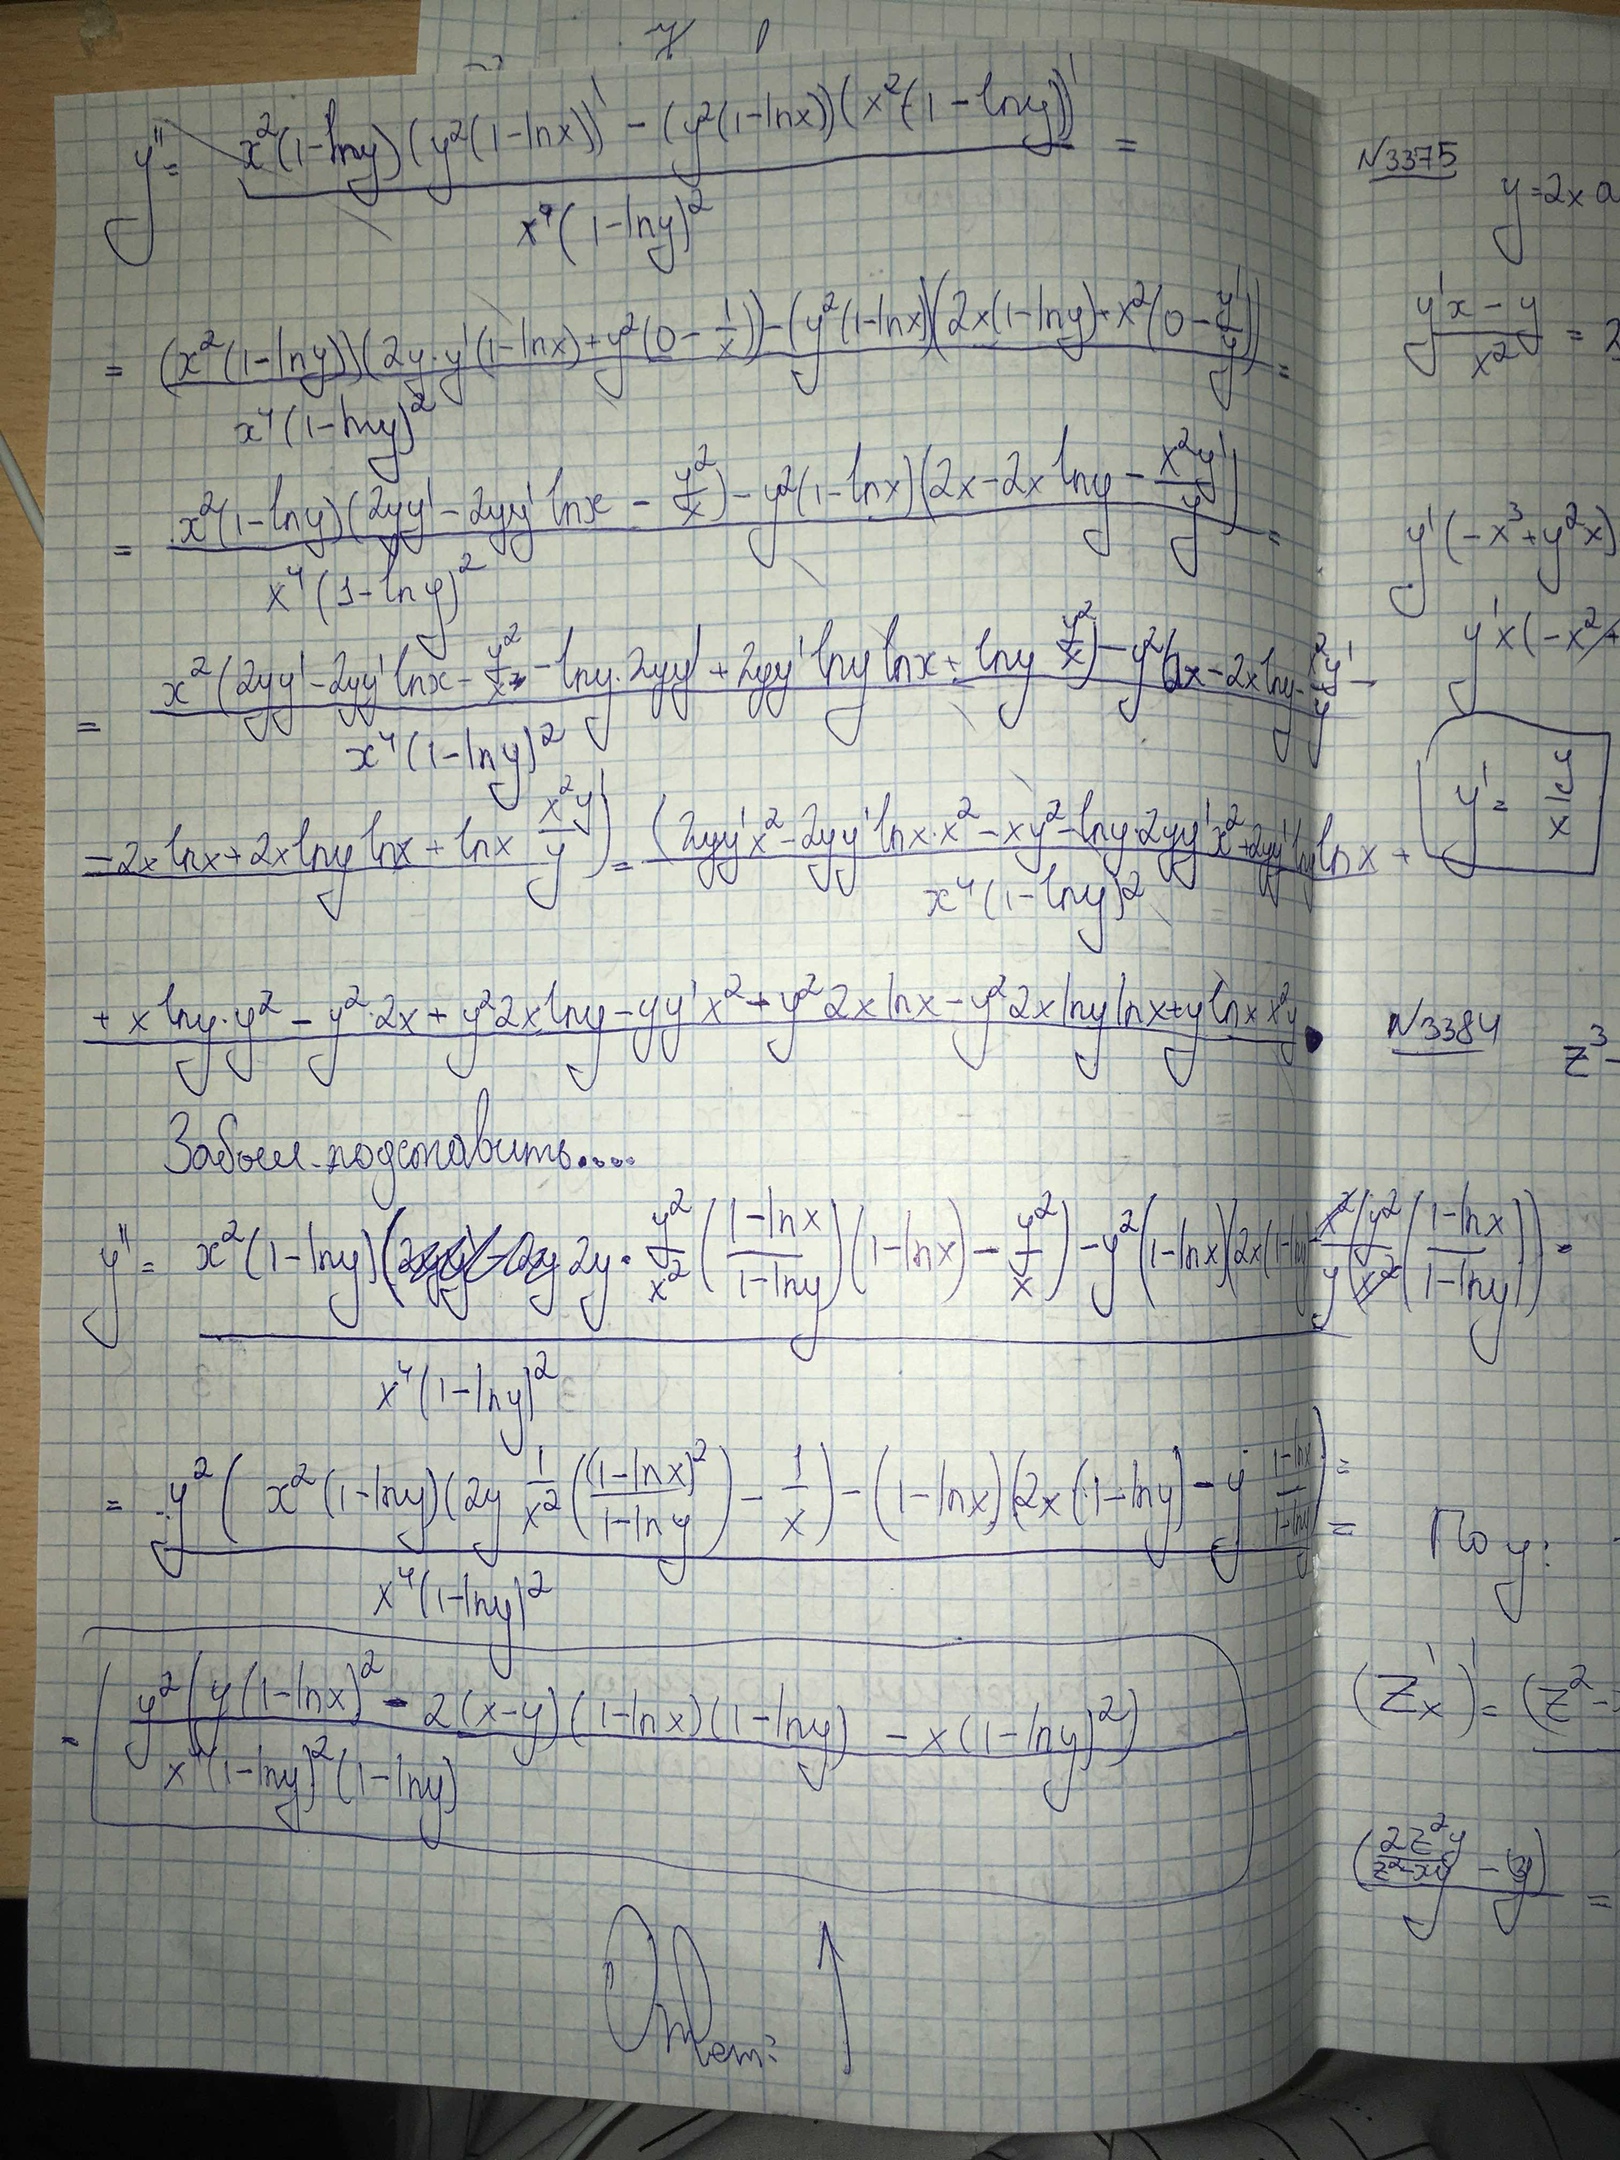 y'' = x²(1-lny)(y²(1-lnx))' - (y²(1-lnx))(x²(1-lny))' =
x⁴(1-lny)²
= (x²(1-lny))(2y·y'(1-lnx)+y²(0-1/x))-(y²(1-lnx)(2x(1-lny)+x²(0-y'/y)) =
x⁴(1-lny)²
= x²(1-lny)(2yy'-2yy'lnx - y²/x)-y²(1-lnx)(2x-2x lny - x²y'/y) =
x⁴(1-lny)²
= x²(2yy'-2yy'lnx-y²/x-lny·2yy'+2yy'lny lnx+lny y²/x)-y²(2x-2x lny-x²y'/y-
x⁴(1-lny)²
-2x lnx+2x lny lnx+lnx x²y'/y) = (2yy'x²-2yy'lnx·x²-xy²-lny·2yy'x²+2yy'lny lnx +
x⁴(1-lny)²
+ x lny·y² - y²·2x + y²2x lny - yy'x² + y²2x lnx - y²2x lny lnx + y lnx x²y'
Забыл подставить....
y'' = x²(1-lny)(2y·y²/x²((1-lnx)/(1-lny))(1-lnx)-y²/x)-y²(1-lnx)(2x(1-lny)-x²/y(y²/x²((1-lnx)/(1-lny))) =
x⁴(1-lny)²
= y²(x²(1-lny)(2y 1/x²((1-lnx)²/(1-lny))-1/x)-(1-lnx)(2x(1-lny)-y (1-lnx)/(1-lny)) =
x⁴(1-lny)²
= y²(y(1-lnx)²-2(x-y)(1-lnx)(1-lny)-x(1-lny)²)
x⁴(1-lny)²(1-lny)
Ответ: ↑
N3375
y=2x a
y'x-y/x² = 2
y'(-x³+y²x)
y'x(-x²+
y'= y/x
N3384
z³-
По y:
(z'x)' = (z²-
(2z²y/z²-xy - y) =